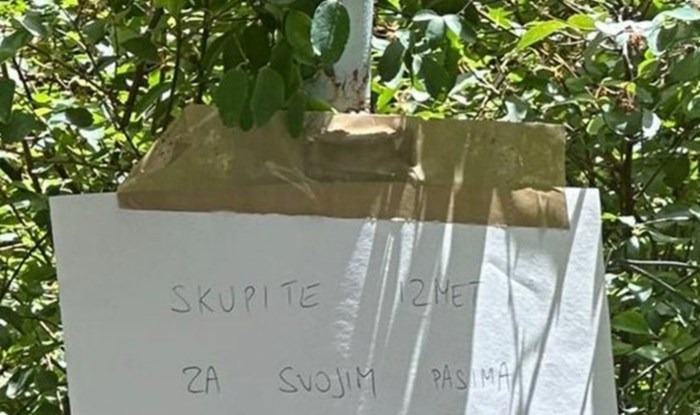 SKUPITE IZMET
ZA SVOJIM PASIMA